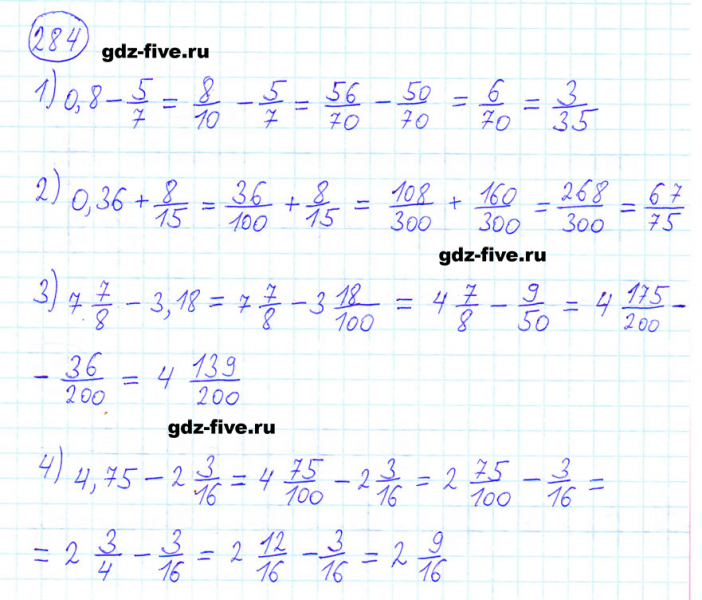 284
gdz-five.ru
1) 0,8 - 5/7 = 8/10 - 5/7 = 56/70 - 50/70 = 6/70 = 3/35
2) 0,36 + 8/15 = 36/100 + 8/15 = 108/300 + 160/300 = 268/300 = 67/75
gdz-five.ru
3) 7 7/8 - 3,18 = 7 7/8 - 3 18/100 = 4 7/8 - 9/50 = 4 175/200 -
- 36/200 = 4 139/200
gdz-five.ru
4) 4,75 - 2 3/16 = 4 75/100 - 2 3/16 = 2 75/100 - 3/16 =
= 2 3/4 - 3/16 = 2 12/16 - 3/16 = 2 9/16